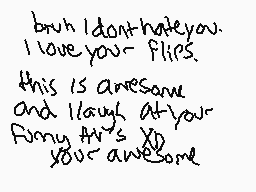 bruh I dont hate you.
I love your flips.
this is awesome
and I laugh at your
funny AV's XD
your awesome